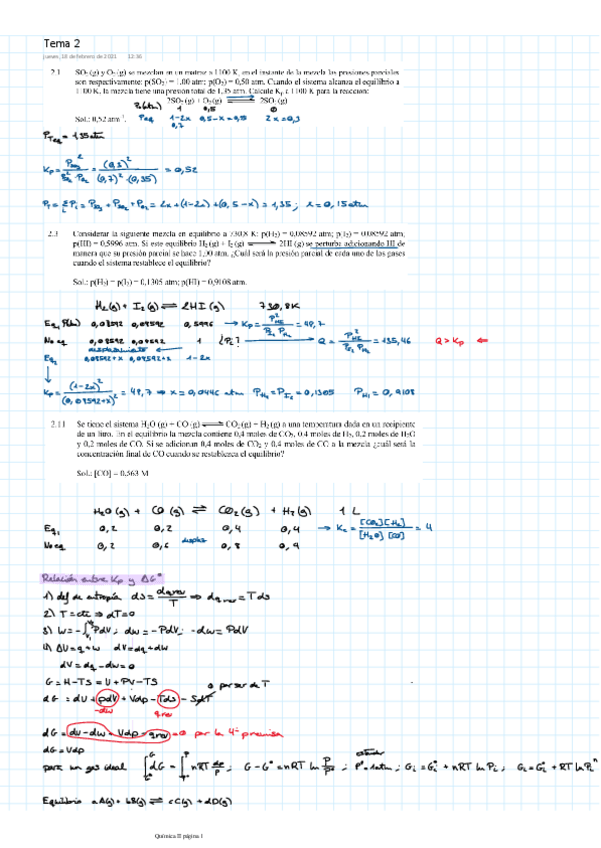 Tema 2
jueves, 18 de febrero de 2021 12:36
2.1 SO₂ (g) y O₂ (g) se mezclan en un matraz a 1100 K, en el instante de la mezcla las presiones parciales
son respectivamente: p(SO₂) = 1,00 atm; p(O₂) = 0,50 atm. Cuando el sistema alcanza el equilibrio a
1100 K, la mezcla tiene una presión total de 1,35 atm. Calcule Kp a 1100 K para la reacción:
2SO₂ (g) + O₂ (g) ⇌ 2SO₃ (g)
P₀(atm) 1 0,5 0
Sol.: 0,52 atm⁻¹. Peq 1-2x 0,5-x=0,35 2x=0,3
0,7
P_Teq = 1,35 atm
Kp = P²SO₃ / P²SO₂ · PO₂ = (0,3)² / (0,7)² · (0,35) = 0,52
Pt = Σ Pi = PSO₃ + PSO₂ + PO₂ = 2x + (1-2x) + (0,5-x) = 1,35 ; x = 0,15 atm
2.3 Considerar la siguiente mezcla en equilibrio a 730,8 K: p(H₂) = 0,08592 atm; p(I₂) = 0,08592 atm;
p(HI) = 0,5996 atm. Si este equilibrio H₂ (g) + I₂ (g) ⇌ 2HI (g) se perturba adicionando HI de
manera que su presión parcial se hace 1,00 atm, ¿Cuál será la presión parcial de cada uno de los gases
cuando el sistema restablece el equilibrio?
Sol.: p(H₂) = p(I₂) = 0,1305 atm; p(HI) = 0,9108 atm.
H₂(g) + I₂(g) ⇌ 2HI(g) 730,8K
Eq₁ P(atm) 0,08592 0,08592 0,5996 → Kp = P²HI / PI₂ PH₂ = 48,7
No eq 0,08592 0,08592 1 ¿Pi? → Q = P²HI / PI₂ PH₂ = 135,46 Q > Kp ←
desplazamiento
Eq₂ 0,08592+x 0,08592+x 1-2x
Kp = (1-2x)² / (0,08592+x)² = 48,7 → x = 0,0446 atm PH₂ = PI₂ = 0,1305 PHI = 0,9108
2.11 Se tiene el sistema H₂O (g) + CO (g) ⇌ CO₂ (g) + H₂ (g) a una temperatura dada en un recipiente
de un litro. En el equilibrio la mezcla contiene 0,4 moles de CO₂, 0,4 moles de H₂, 0,2 moles de H₂O
y 0,2 moles de CO. Si se adicionan 0,4 moles de CO₂ y 0,4 moles de CO a la mezcla ¿cuál será la
concentración final de CO cuando se restablezca el equilibrio?
Sol.: [CO] = 0,563 M
H₂O(g) + CO(g) ⇌ CO₂(g) + H₂(g) 1 L
Eq₁ 0,2 0,2 0,4 0,4 → Kc = [CO₂][H₂] / [H₂O][CO] = 4
No eq 0,2 0,6 0,8 0,4
Relación entre Kp y ΔG°
1) def de entropía dS = dqrev / T ⇒ dqrev = TdS
2) T = cte ⇒ dT = 0
3) W = -∫PdV ; dw = -PdV ; -dw = PdV
4) ΔU = q + w dU = dq + dw
dU - dq - dw = 0
G = H - TS = U + PV - TS 0 por ser cte T
dG = dU + pdV + Vdp - Tds - SdT
-dw qrev
dG = dU - dw + Vdp - qrev = 0 por la 4ª premisa
dG = Vdp
para un gas ideal ∫dG = ∫nRT dP/P ; G - G° = nRT ln P/P° ; P° = 1atm ; Gi = Gi° + nRT ln Pi ; Gi = Gi° + RT ln Piⁿ
Equilibrio aA(g) + bB(g) ⇌ cC(g) + dD(g)
Química II página 1